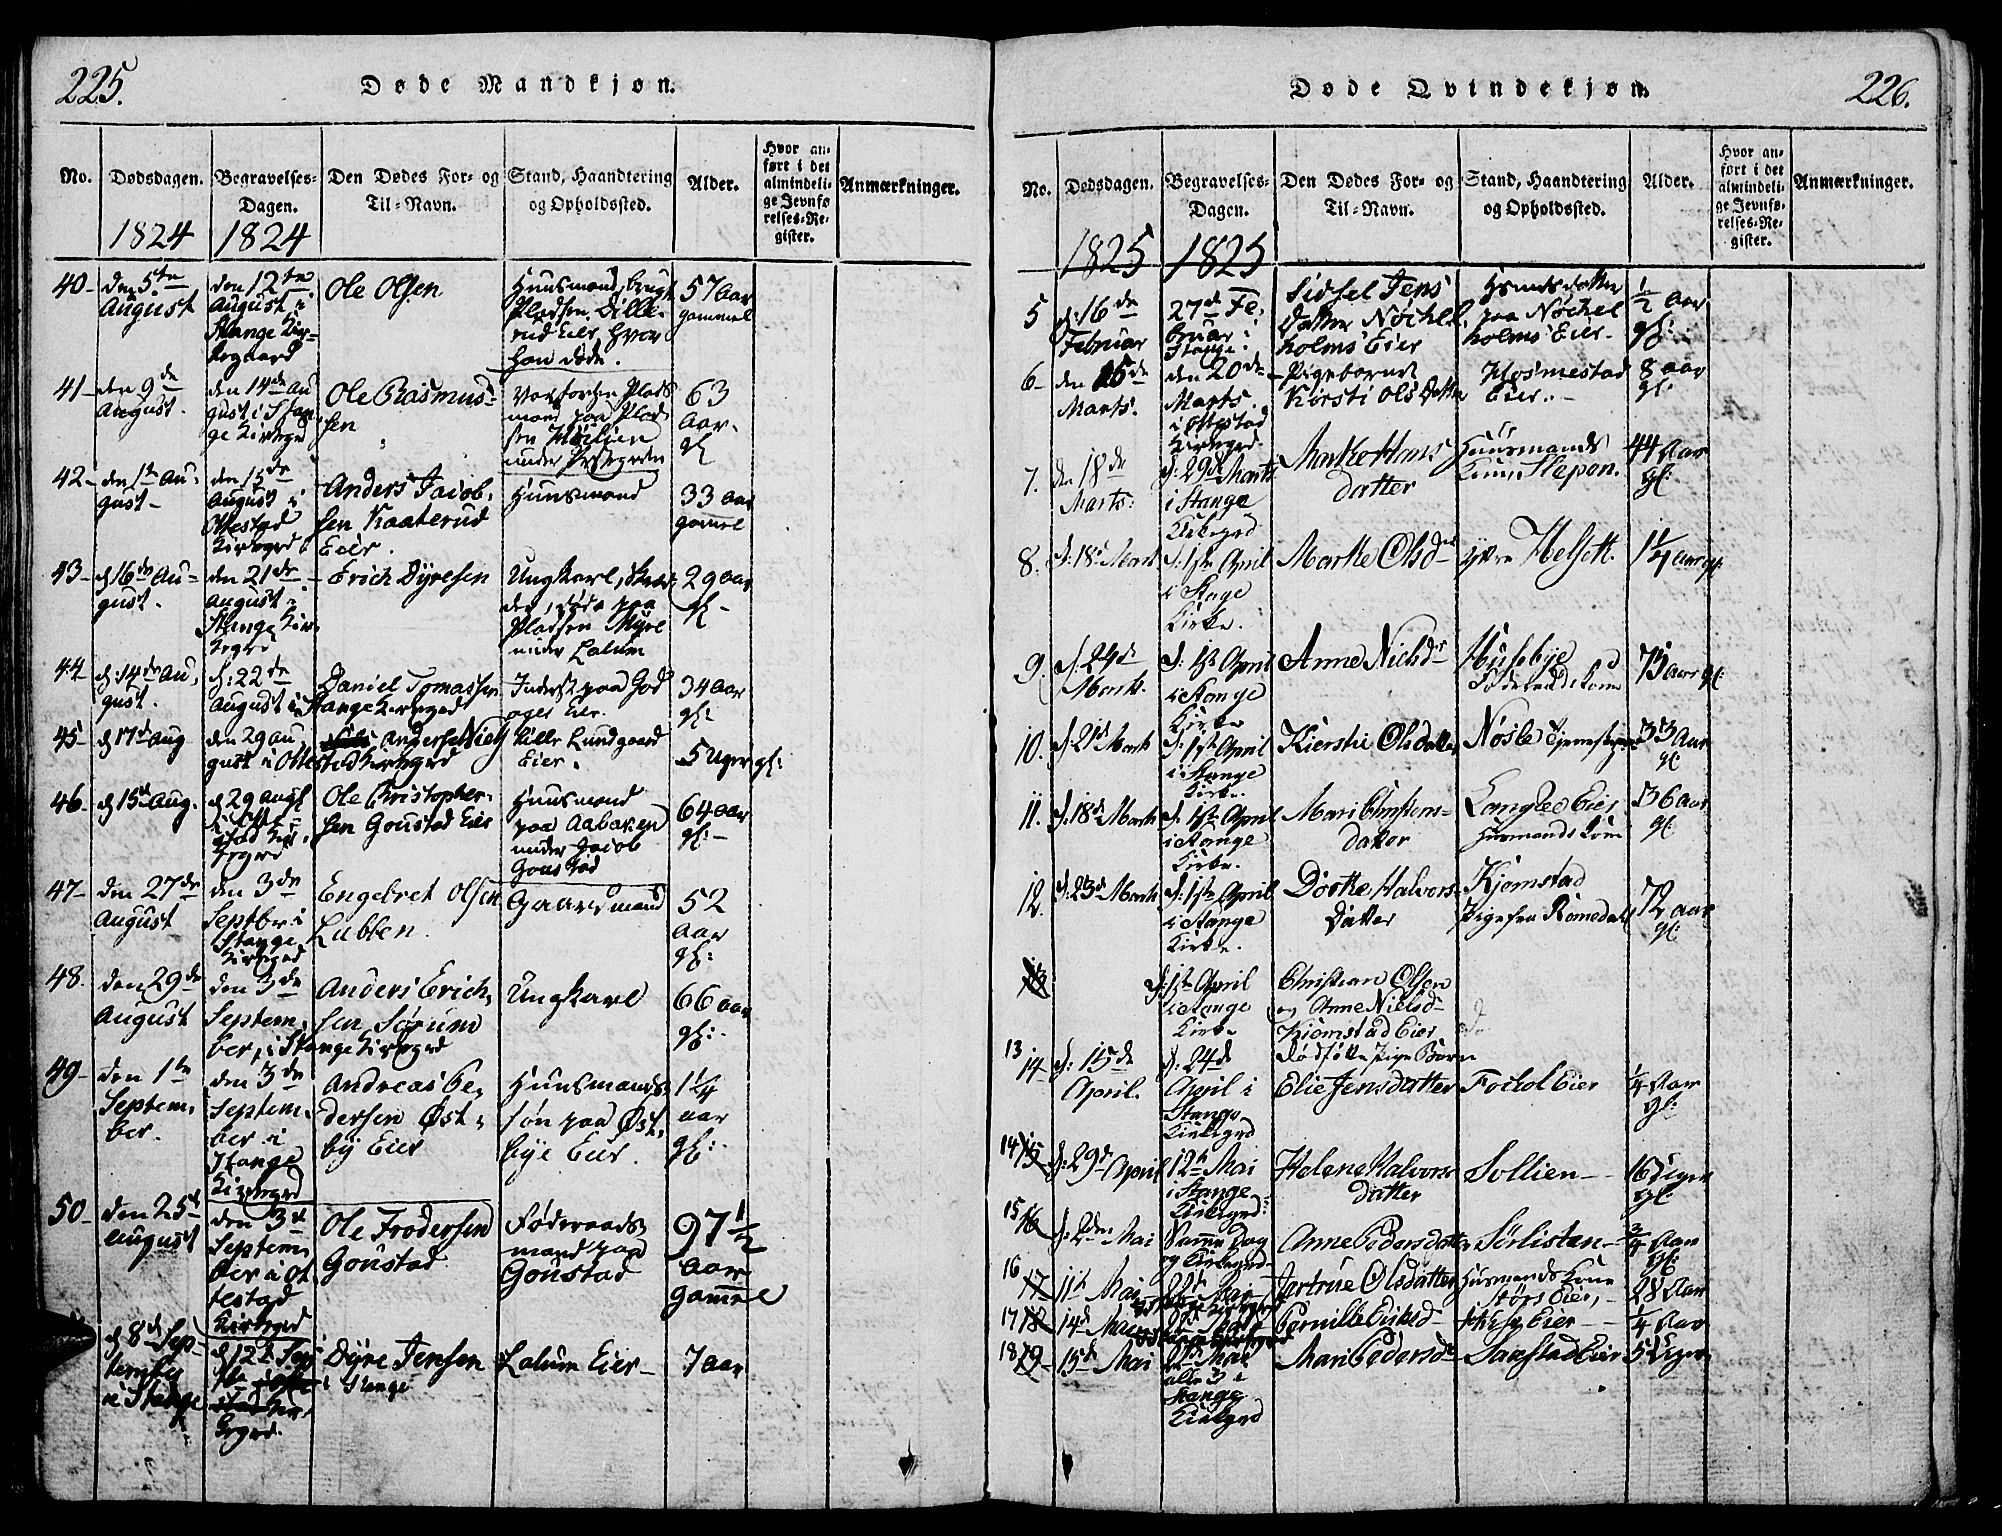 225.
Døde Mandkjøn.
No.
Dødsdagen.
1824
Begravelses-
Dagen.
1824
Den Dødes For- og
Til-Navn.
Stand, Haandtering
og Opholdssted.
Alder.
Hvor an-
ført i det
almindeli-
ge Jevnfø-
relses-Re-
gister.
Anmærkninger.
40-
den 5te
August
den 12te
August i
Stange Kir-
kegaard
Ole Olsen
Huusmand, brugt
Pladsen Dille-
rud Eier, hvor
han døde.
57 Aar
gammel
41-
den 9de
August.
den 14de Au
gust i Stan
ge Kirkegrd
Ole Rasmus-
sen
Plads
mand paa Plad
sen
under
63
Aar.
gl
42-
den 1te Au-
gust-
den 15de
August i
Ottestad
Kirkegrd
Anders Jacob,
sen Kaaterud
Eier.
Huusmand
33 Aar
gamel
43-
d. 16de Au-
gust.
den 21de
August i
Stange Kir,
kegrd
Erich Dyresen
Ungkarl,
døde paa
Pladsen Myre
under Lalum
29 Aar
gl-
44-
d: 14de Au,
gust.
d: 22de
August i Stange Kirkegrd
Daniel Tomassen
Inderst paa God
ager Eier.
34 Aar
gl:
45-
d 17d Aug
den 29 Au
gust i Ottestad Kirkegrd
Lille Lundgaard
Eier.
5 Uger gl:
46-
d 15de Aug.
d 29 Augl
i Otte-
stad Kir,
kegrd
Ole Christopher-
sen Goustad Eier
Huusmand
paa Aabakken
under Jacob
Goustad
64 Aar
gl:-
47-
den 27de
August
den 3de
Septbr i
Stange
Kirkegrd
Engebret Olsen
Lubben.
Gaardmand
52
Aar
gl:
48.
den 29de
August
den 3de
Septem,
ber, i Stange Kirkegrd
Anders Erich,
sen Sørum
Ungkarl
66 Aar
gl:-
49-
den 1te
Septem,
ber.
den 3de
Septem,
ber i
Stange
Kirkegrd
Andreas Pe,
dersen Øst,
by Eier
Huusmands,
søn paa Øst,
bye Eier.
1¼
Aar
gl:-
50-
den 25d
August
den 3d
Septem,
ber i Ot
testad
Kirkegrd
Ole Frodersen
Goustad
Føderaads
mand paa
Goustad
97½
Aar
Gammel
d 8de Sep-
tember
i Stange
d 12te Sep
Kir,
kegrd.
Dyre Jensen
i Stange
Lalum Eier-
7 Aar
226.
Døde Qvindekjøn.
No.
Dødsdagen.
1825
Begravelses-
Dagen.
1825
Den Dødes For- og
Til-Navn.
Stand, Haandtering
og Opholdssted.
Alder.
Hvor an-
ført i det
almindeli-
ge Jevnfø-
relses-Re-
gister.
Anmærkninger.
5
d: 16de
Februar
27de Fe,
bruar i
Stange.
Sidsel Jens
datter Nøchle
holms Eier
paa Nøchel
holms Eier.
½ Aar
gl:
6-
den 15de
Marts.
den 20de
Marts.
i Ottestad
Kirkegrd.
Pigebarnet
Kirsti Ols Datter
Hosmestad
Eier.-
8 Aar
gl:
7.
den 18de
Marts.
d: 29de Marts
i Stange
Kirkegrd
Marthe Hans
datter
Huusmands
Kone, Slepon.
44 Aar
gl:
8.
d. 18d Marts
d. 1ste April
i Stage
Kirke.
Marthe Olsdr
ytre Helseth.
1¼ Aar gl.
9.
d. 24de
Marts.
d: 1ste April
i Stange
Kirke
Anne Nielsdr
Husebye
Føderaads Kone
75 Aar gl:
10.
d. 21d Marts
d: 1ste April
i Stange
Kirke.
Kierstie Olsdatter
Nøsle
33 Aar
gl
11.
d. 18d Marts
d. 1ste April
i Stange
Kirke.
Mari
datter
Langlie Eier
Husmands Kone
36 Aar
gl
12.
d: 23de Marts
d. 1ste April
i Stange
Kirke.
Dorthe Halvors-
Datter
Kjemstad
Pige fra Romedal
72 Aar
gl:
13
d: 1ste April
i Stange
Kirke
Christian Olsen
og Anne Nielsd
Kjemstad Eier
dødfødte Pige Barn
13
14
d: 15de
April.
d: 24de
April i
Stange
Kirkegrd
Elie Jensdatter
Fockol Eier
¼ Aar
gl:
14
15
d. 29d April
12te Mai
i Stange
Kirkegrd:
Helene Halvors
datter
Sollien-
16 Uger
gl:
15
16
d: 2den Mai
Samme Dag
og Kirkegrd
Anne Pedersdatter
Sørlistuen-
¾ Aar
gl:
16
17
11te Mai
Jertrue Olsdatter
Husmands Kone
Størs Eier,
28 Aar
17
18
14d Mai
Pernille Eriksd
Eier-
¼ Aar
18
19-
15de Mai
alle 3 i
Stange
Kirkegrd
Mari Pedersdr
Saxstad Eier
5 Uger